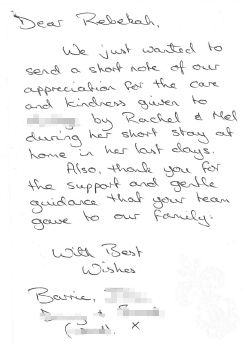 Dear Rebekah,
We just wanted to
send a short note of our
appreciation for the care
and kindness given to
by Rachel & Mel
during her short stay at
home in her last days.
Also, thank you for
the support and gentle
guidance that your team
gave to our family.
With Best
Wishes
Barrie,
x